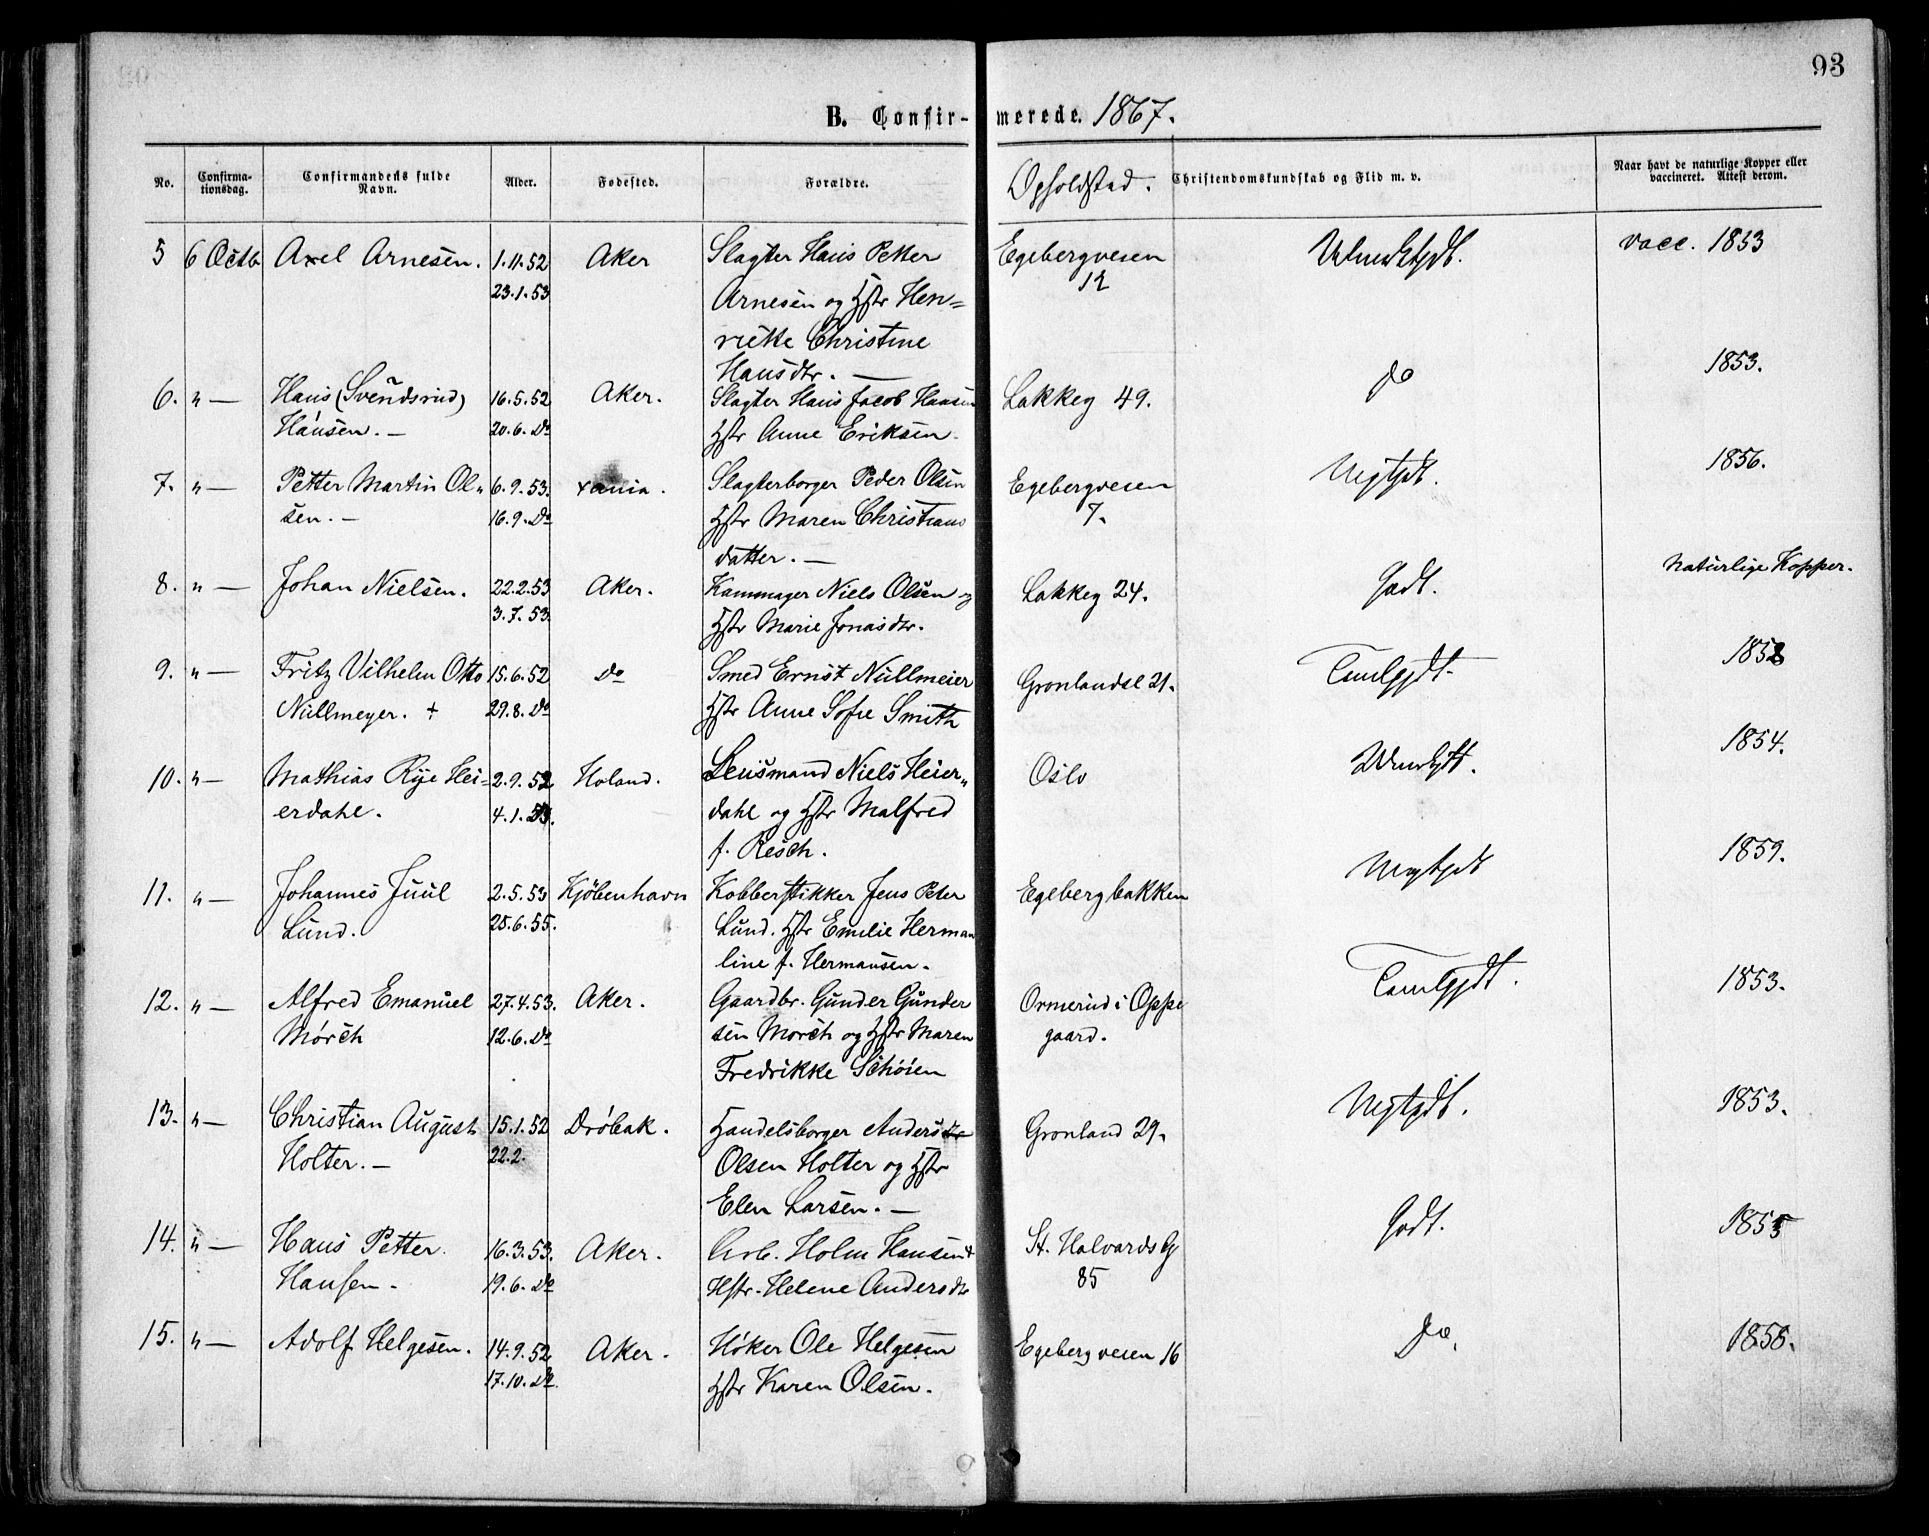 93
B. Confir- merede. 1867.
No. Confirma-tionsdag. Confirmandens fulde Navn. Alder. Fødested. Forældre. Opholdsted. Christendomskundskab og Flid m. v. Naar havt de naturlige Kopper eller vaccineret. Attest derom.
5 6 Octb. Axel Arnesen. 1.11.52 Aker Slagter Hans Petter Egebergveien vacc. 1853
23.1.53 Arnesen og Hstr Hen= 12
riette Christine
Hansdtr. —
6. " — Hans (Svendsrud) 16.5.52 Aker. Slagter Hans Jacob Hansen Lakkeg 49. do 1853.
Hansen. — 20.6. Do Hstr Anne Eriksen.
7. " — Petter Martin Ol- 6.9.53. Xania. Slagterborger Peder Olsen Egebergveien Megtgdt. 1856.
sen. — 16.9. Do Hstr Maren Christians 7.
datter. —
8. " — Johan Nielsen. 22.2.53 Aker. Kammager Niels Olsen og Lakkeg 24. Godt. Naturlige Kopper.
3.7.53. Hstr Marie Jonasdtr.
9. " — Fritz Vilhelm Otto 15.6.52 Do Smed Ernst Nüllmeier Gronlandsl 21. Temlgdt. 1852
Nüllmeyer. + 29.8. Do Hstr Anne Sofie Smith
10. " — Mathias Rye Hei- 2.9.52 Holand. Lensmand Niels Heier- Oslo 1854.
erdahl. 4.1.53. dahl og Hstr Malfred
f. Resch.
11. " — Johannes Juul 2.5.53 Kjöbenhavn Kobberstikker Jens Peter Egebergbakken Megtgdt 1859.
Lund. 28.6.55. Lund. Hstr Emilie Herman
line f. Hermansen.
12. " — Alfred Emanuel 27.4.53. Aker. Gaardbr. Gunder Gunder Ormerud i Oppe Temlgdt. 1853.
Mørch 12.6. Do sen Morch og Hstr Maren gaard.
Fredrikke Schøien
13. " — Christian August 15.1.52 Dröbak. Handelsborger Anders Gronland 29. Megtgdt. 1853.
Holter. — 22.2. Olsen Holter og Hstr
Elen Larsen. —
14. " — Hans Petter 16.3.53. Aker. Arb. Holm Hansen & St. Halvards G Godt. 1855
Hansen. 19.6. Do Hstr. Helene Andersdtr 85
15. " — Adolf Helgesen. 14.9.52 Aker. Høker Ole Helgesen Egebergveien 16 Do. 1856.
17.10. Do. Hstr Karen Olsen.